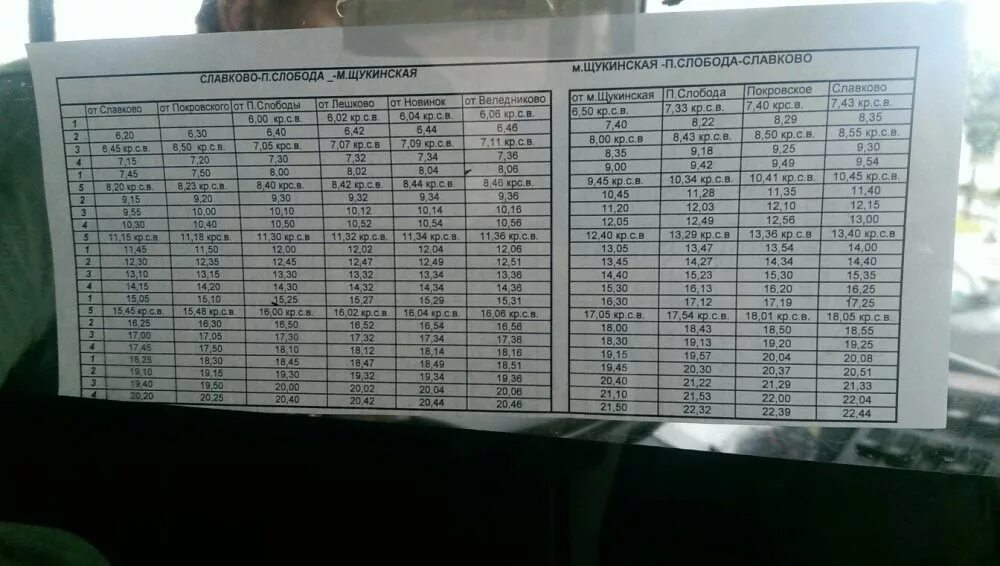 СЛАВКОВО-П.СЛОБОДА _-М.ЩУКИНСКАЯ
от Славково от Покровского от П.Слободы от Лешково от Новинок от Веледниково
1 6,00 кр.с.в. 6,02 кр.с.в. 6,04 кр.с.в. 6,06 кр.с.в.
2 6,20 6,30 6,40 6,42 6,44 6,46
3 6,45 кр.с.в. 6,50 кр.с.в. 7,05 крс.в. 7,07 кр.с.в 7,09 кр.с.в. 7,11 кр.с.в.
4 7,15 7,20 7,30 7,32 7,34 7,36
1 7,45 7,50 8,00 8,02 8,04 8,06
5 8,20 кр.с.в. 8,23 кр.с.в. 8,40 крс.в. 8,42 кр.с.в. 8,44 кр.с.в. 8,46 крс.в.
2 9,15 9,20 9,30 9,32 9,34 9,36
3 9,55 10,00 10,10 10,12 10,14 10,16
4 10,30 10,40 10,50 10,52 10,54 10,56
5 11,15 кр.с.в 11,18 крс.в. 11,30 кр.с.в 11,32 кр.с.в. 11,34 кр.с.в. 11,36 кр.с.в.
1 11,45 11,50 12,00 12,02 12,04 12,06
2 12,30 12,35 12,45 12,47 12,49 12,51
3 13,10 13,15 13,30 13,32 13,34 13,36
4 14,15 14,20 14,30 14,32 14,34 14,36
1 15,05 15,10 15,25 15,27 15,29 15,31
5 15,45 кр.с.в. 15,48 кр.с.в. 16,00 кр.с.в. 16,02 кр.с.в. 16,04 кр.с.в. 16,06 кр.с.в.
2 16,25 16,30 16,50 16,52 16,54 16,56
3 17,00 17,05 17,30 17,32 17,34 17,36
4 17,45 17,50 18,10 18,12 18,14 18,16
1 18,25 18,30 18,45 18,47 18,49 18,51
2 19,10 19,15 19,30 19,32 19,34 19,36
3 19,40 19,50 20,00 20,02 20,04 20,06
4 20,20 20,25 20,40 20,42 20,44 20,46
м.ЩУКИНСКАЯ -П.СЛОБОДА-СЛАВКОВО
от м.Щукинская П.Слобода Покровское Славково
6,50 кр.с.в. 7,33 кр.с.в. 7,40 крс.в. 7,43 кр.с.в.
7,40 8,22 8,29 8,35
8,00 кр.с.в 8,43 кр.с.в. 8,50 кр.с.в. 8,55 кр.с.в.
8,35 9,18 9,25 9,30
9,00 9,42 9,49 9,54
9,45 кр.с.в. 10,34 кр.с.в. 10,41 кр.с.в. 10,45 кр.с.в.
10,45 11,28 11,35 11,40
11,20 12,03 12,10 12,15
12,05 12,49 12,56 13,00
12,40 кр.с.в. 13,29 кр.с.в. 13,36 кр.с.в 13,40 кр.с.в
13,05 13,47 13,54 14,00
13,45 14,27 14,34 14,40
14,40 15,23 15,30 15,35
15,30 16,13 16,20 16,25
16,30 17,12 17,19 17,25
17,05 кр.с.в. 17,54 кр.с.в. 18,01 кр.с.в. 18,05 кр.с.в.
18,00 18,43 18,50 18,55
18,30 19,13 19,20 19,25
19,15 19,57 20,04 20,08
19,45 20,30 20,37 20,51
20,40 21,22 21,29 21,33
21,10 21,53 22,00 22,04
21,50 22,32 22,39 22,44